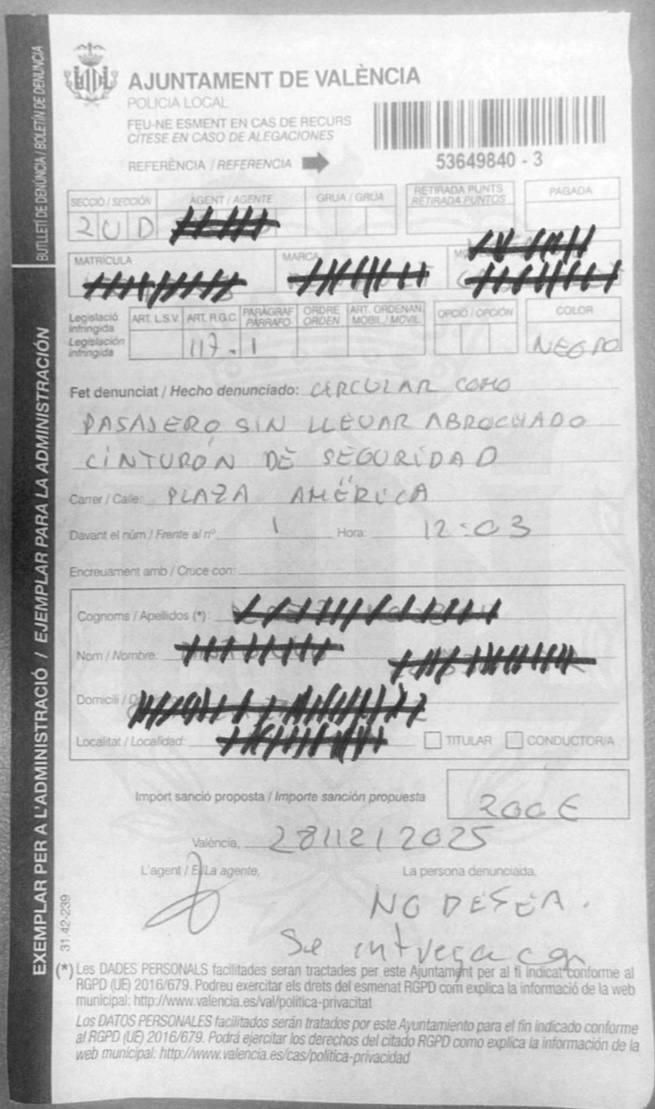 AJUNTAMENT DE VALÈNCIA
POLICIA LOCAL
FEU-NE ESMENT EN CAS DE RECURS
CÍTESE EN CASO DE ALEGACIONES
REFERÈNCIA / REFERENCIA
53649840 - 3
BUTLLETÍ DE DENÚNCIA / BOLETÍN DE DENUNCIA
EXEMPLAR PER A L'ADMINISTRACIÓ / EJEMPLAR PARA LA ADMINISTRACIÓN
SECCIÓ / SECCIÓN AGENT / AGENTE GRUA / GRÚA RETIRADA PUNTS RETIRADA PUNTOS PAGADA
2UD
MATRÍCULA MARCA
Legislació infringida Legislación infringida
ART. L.S.V. ART. R.G.C. PARÀGRAF PÁRRAFO ORDRE ORDEN ART. ORDENAN. MOBIL / MÓVIL OPCIÓ / OPCIÓN COLOR
117.1 NEGRO
Fet denunciat / Hecho denunciado: CIRCULAR COMO
PASAJERO SIN LLEVAR ABROCHADO
CINTURÓN DE SEGURIDAD
Carrer / Calle: PLAZA AMÉRICA
Davant el núm / Frente al nº 1 Hora: 12:03
Encreuament amb / Cruce con:
Cognoms / Apellidos (*):
Nom / Nombre:
Domicili /
Localitat / Localidad: TITULAR CONDUCTOR/A
Import sanció proposta / Importe sanción propuesta 200€
València, 28/12/2025
L'agent / El/La agente, La persona denunciada,
NO DESEA.
Se entrega
31.42-239
(*) Les DADES PERSONALS facilitades seran tractades per este Ajuntament per al fi indicat conforme al
RGPD (UE) 2016/679. Podreu exercitar els drets del esmenat RGPD com explica la informació de la web
municipal: http://www.valencia.es/val/politica-privacitat
Los DATOS PERSONALES facilitados serán tratados por este Ayuntamiento para el fin indicado conforme
al RGPD (UE) 2016/679. Podrá ejercitar los derechos del citado RGPD como explica la información de la
web municipal: http://www.valencia.es/cas/politica-privacidad